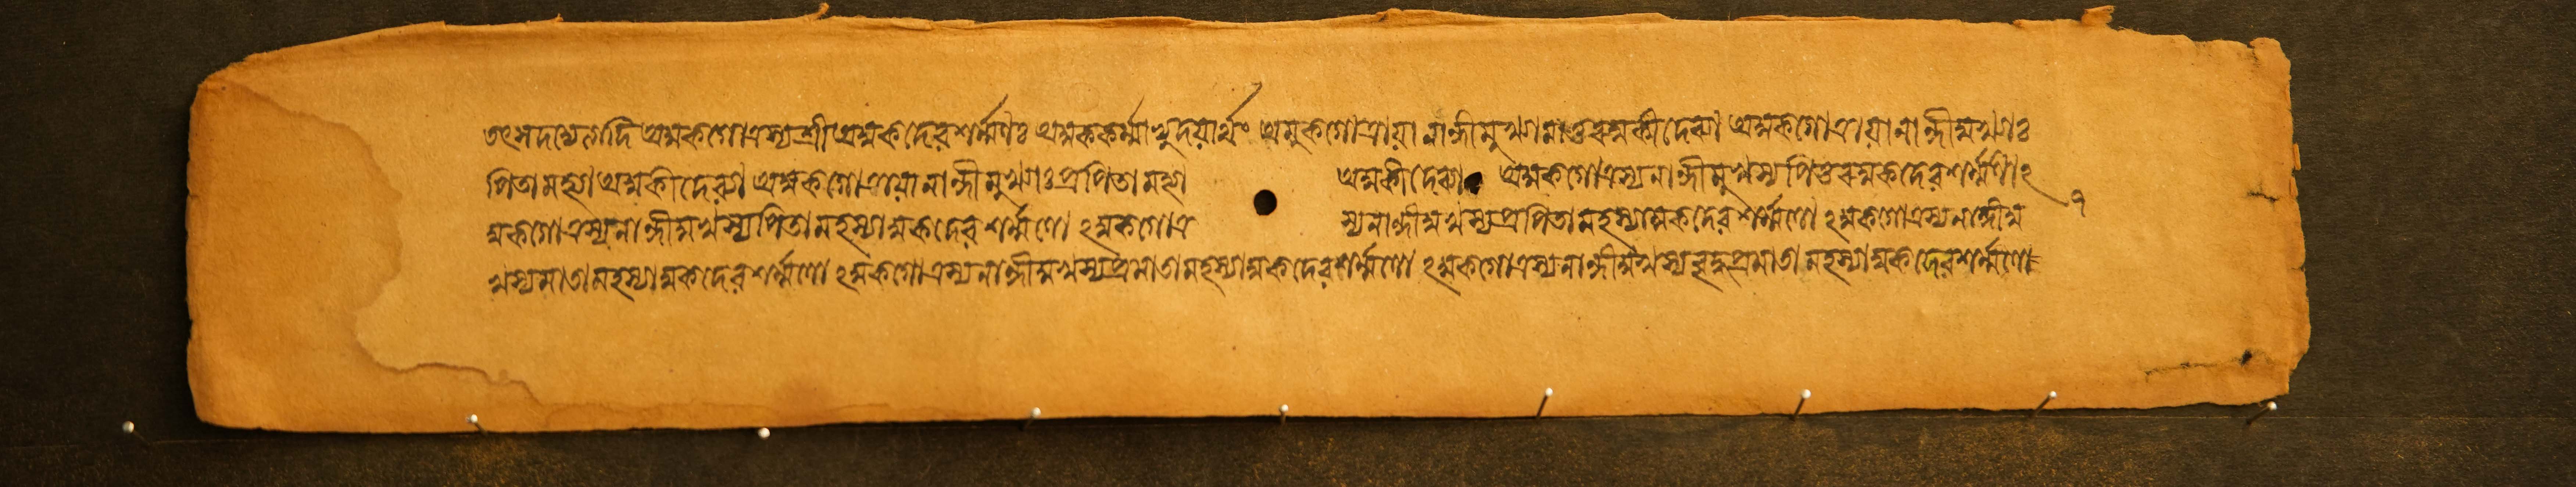 ওঁসদদ্যেত্যাদি অমুকগোত্রস্য শ্রীঅমুকদেবশর্ম্মণঃ অমুককর্ম্মাভ্যুদয়ার্থং অমুকগোত্রায়া নান্দীমুখ্যা মাতুরমুকীদেব্যা অমুকগোত্রায়া নান্দীমুখ্যাঃ
পিতামহ্যা অমুকীদেব্যা অমুকগোত্রায়া নান্দীমুখ্যাঃ প্রপিতামহ্যা অমুকীদেব্যা অমুকগোত্রস্য নান্দীমুখস্য পিতুরমুকদেবশর্ম্মণোঽ
মুকগোত্রস্য নান্দীমুখস্য পিতামহস্যামুকদেবশর্ম্মণোঽমুকগোত্র স্য নান্দীমুখস্য প্রপিতামহস্যামুকদেবশর্ম্মণোঽমুকগোত্রস্য নান্দীমু
খস্য মাতামহস্যামুকদেবশর্ম্মণোঽমুকগোত্রস্য নান্দীমুখস্য প্রমাতামহস্যামুকদেবশর্ম্মণোঽমুকগোত্রস্য নান্দীমুখস্য বৃদ্ধপ্রমাতামহস্যামুকদেবশর্ম্মণো